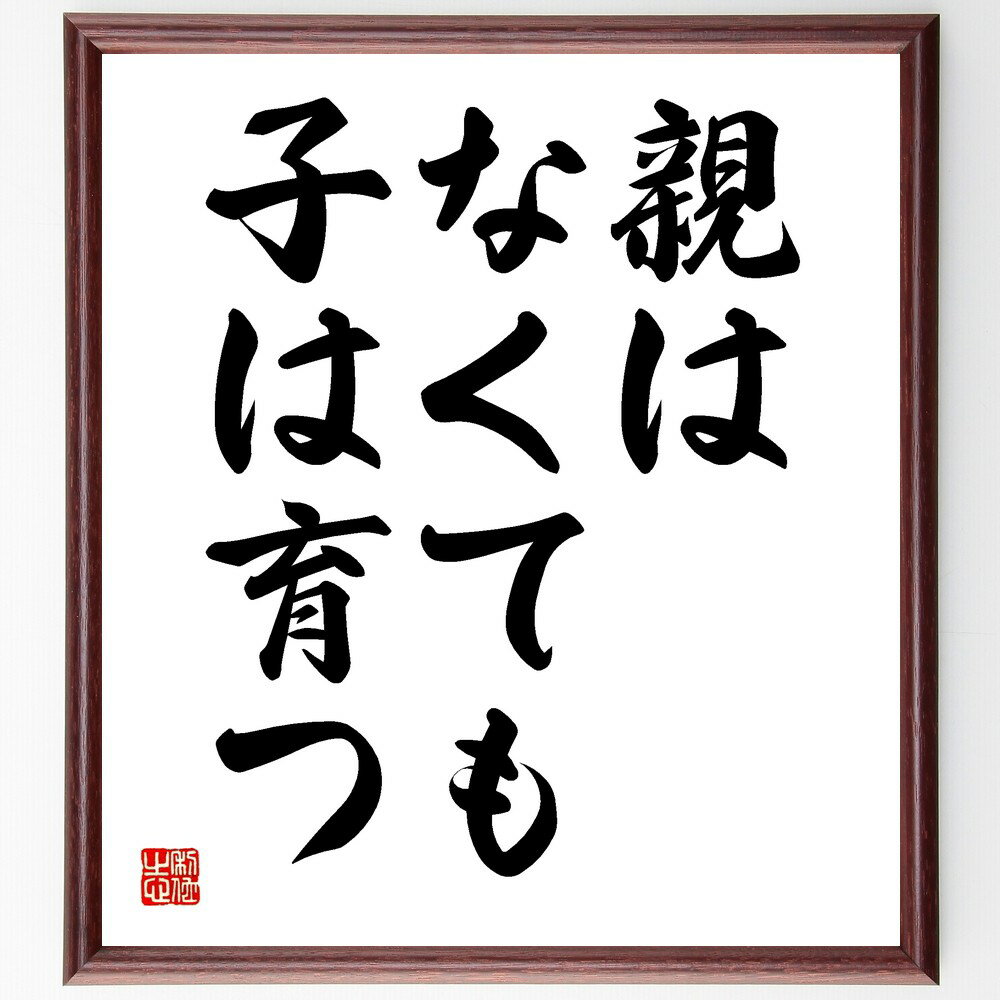 親は
なくても
子は育つ